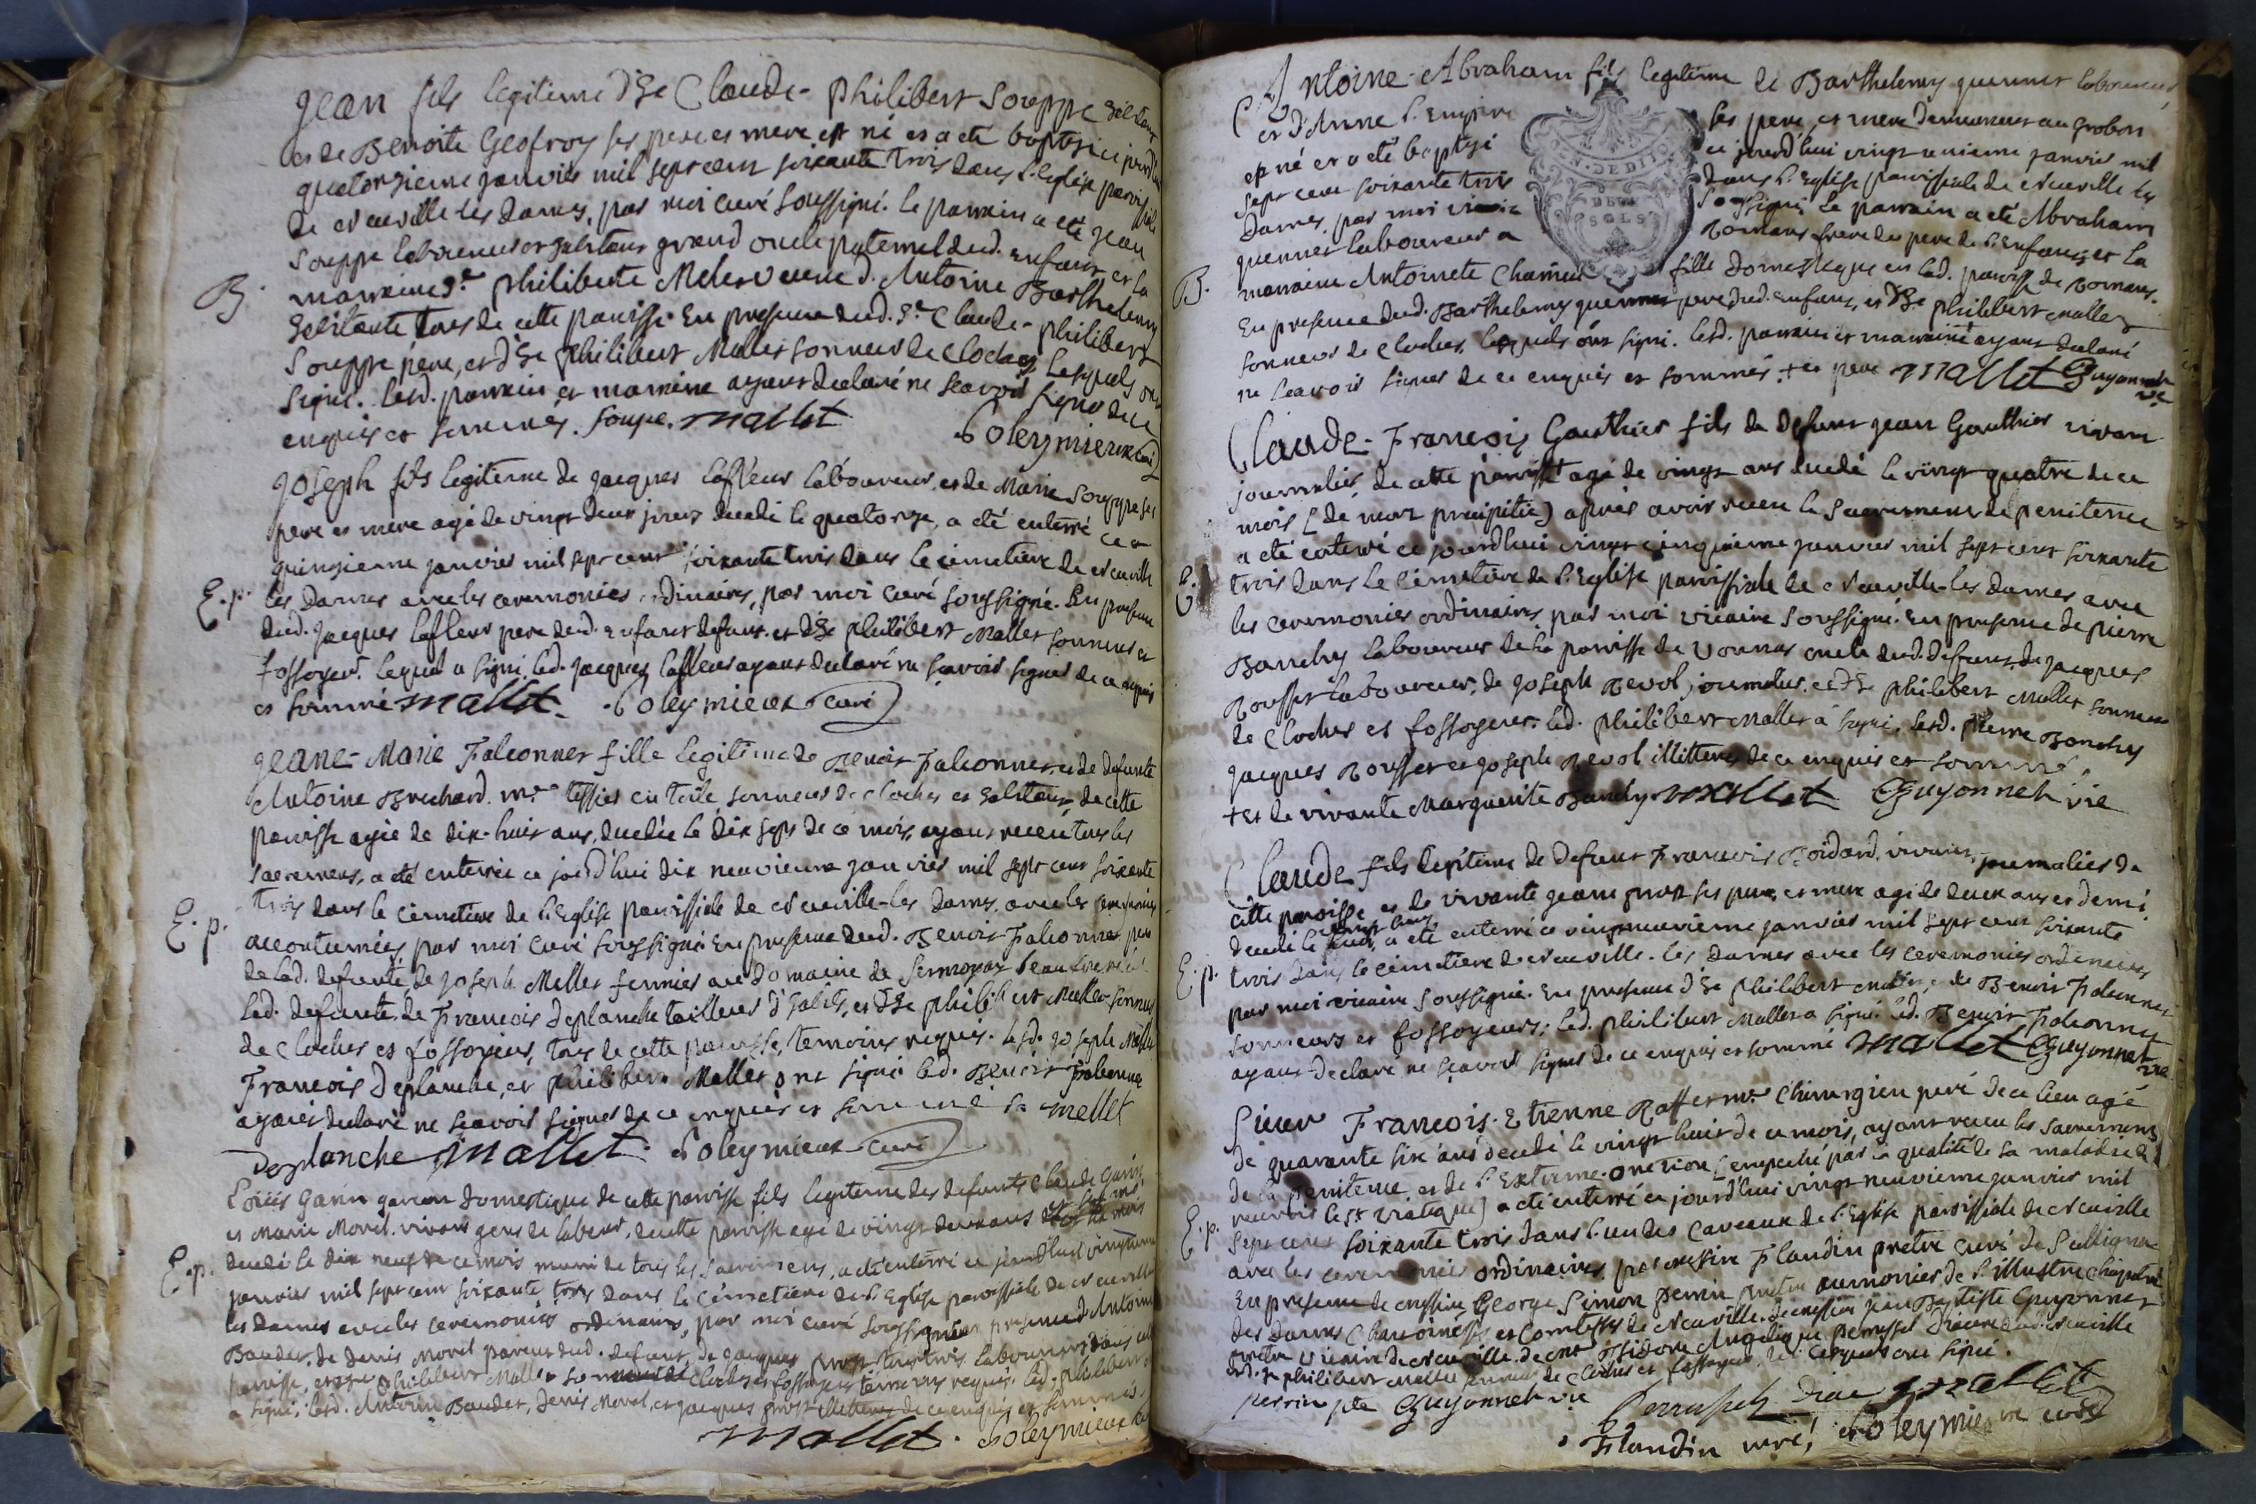 Jean fils legitime d'he Claude-Philibert Souppe habitant
et de Benoite Geofroy ses pere et mere est né et a eté baptisé ce jourd'hui
quatorzieme janvier mil sept cent soixante trois dans l'eglise paroissiale
de Neuville les Dames, par moi curé soussigné. Le parrain a eté Jean
Souppe laboureur et habitant grand oncle paternel dud. enfant, et la
marraine Philiberte Meler veuve d'Antoine Barthelemy
habitante tous de cette paroisse. En presence dud. Sr Claude-Philibert
Souppe pere, et d'he Philibert Mallet sonneur de cloches, lesquels ont
signé. Lesd. parrain et marraine ayant declaré ne sçavoir signer de ce
enquis et sommés. Soupe. Mallet Poleymieux curé
B.
Joseph fils legitime de Jacques Lafleur laboureur, et de Marie Souppe ses
pere et mere agé de vingt deux jours decedé le quatorze, a eté enterré ce
quinzieme janvier mil sept cent soixante trois dans le cimetiere de Neuville
E.p. les Dames avec les ceremonies ordinaires, par moi curé soussigné. En presence
dud. Jacques Lafleur pere dud. enfant defunt et d'he Philibert Mallet sonneur et
fossoyeur. Lequel a signé led. Jacques Lafleur ayant declaré ne scavoir signer de ce enquis
et sommé Mallet. Poleymieux curé
Jeane-Marie Falconner fille legitime de Benoit Falconner, et de defunte
Antoine Brechard. me tissier en toile sonneur de cloches et habitant, de cette
paroisse agée de dix-huit ans, decedée le dix sept de ce mois, ayant receu tous les
sacremens, a eté enterrée ce jourd'hui dix neuvieme janvier mil sept cent soixante
trois dans le cimetiere de l'Eglise paroissiale de Neuville-les Dames, avec les ceremonies
E.p. accoutumées, par moi curé soussigné. En presence dud. Benoit Falconner pere
de lad. defunte, de Joseph Mellet fermier au domaine de beaufrere de
lad. defunte, de Francois Deplanche tailleur d'habits, et d'he Philibert Mallet sonneur
de cloches et fossoyeur, tous de cette paroisse, temoins requis. Lesd. Joseph Mellet
Francois Deplanche, et Philibert Mallet ont signé led. Benoit Falconner
ayant declaré ne sçavoir signer de ce enquis et sommé Mellet
Deplanche Mallet. Poleymieux curé
Loüis Garin garcon domestique de cette paroisse fils legitime des defunts Claude Garin
et Marie Morel. vivans gens de labeur, de cette paroisse agé de vingt deux ans
E.p. decedé le dix neuf de ce mois muni de tous les sacremens, a eté enterré ce jourd'hui vingtieme
janvier mil sept cent soixante trois dans le cimetiere de l'Eglise paroissiale de Neuville
les Dames avec les ceremonies ordinaires, par moi curé soussigné en presence d'Antoine
Baudet, de Denis Morel parent dud. defunt, de Jacques Prost tous trois laboureurs dans cette
paroisse, et d'he Philibert Mallet sonneur de cloches et fossoyeur temoins requis. Led. Philibert
a signé, lesd. Antoine Baudet, Denis Morel, et Jacques Prost illitterés de ce enquis et sommés.
Mallet. Poleymieux
Antoine-Abraham fils legitime de Barthelemy quennet laboureur
et d'Anne l'Empire ses pere et mere demeurant au Grobon
est né et a eté baptisé ce jourd'hui vingt unieme janvier mil
sept cent soixante trois dans l'Eglise paroissiale de Neuville les
Dames, par moi vicaire soussigné, le parrain a eté Abraham
quennet laboureur a Romans frere du pere de l'Enfant, et la
B. marraine Antoinete fille domestique en lad. paroisse de Romans.
En presence dud. Barthelemy quennet pere dud. enfant, et d'he Philibert Mallet
sonneur de cloches, lesquels ont signé. lesd. parrain et marraine ayant declaré
ne sçavoir signer de ce enquis et sommés. Mallet Guyonnet vic
N. DE DIJON
DEUX SOLS
Claude-François Gauthier fils de defunt Jean Gauthier vivant
journalier, de cette paroisse + agé de vingt ans decedé le vingt quatre de ce
mois (de mort precipitée) aprés avoir receu le sacrement de penitence
a eté enterré ce jourd'hui vingt cinquieme janvier mil sept cent soixante
trois dans le cimetiere de l'Eglise paroissiale de Neuville-les Dames avec
les ceremonies ordinaires par moi vicaire soussigné. En presence de Pierre
Banchy laboureur de la paroisse de Vonnas oncle dud. defunt, de Jacques
Rousset laboureur, de Joseph Revol, journalier, et d'he Philibert Mallet sonneur
de cloches et fossoyeur. Led. Philibert Mallet a signé. Lesd. Pierre Banchy
Jacques Rousset et Joseph Revol illitterés de ce enquis et sommés.
+ et de vivante Marguerite Banchy Mallet Guyonnet vic
Claude fils legitime de defunt Francois Boidard, vivant, journalier de
cette paroisse et de vivante Jeane Prost ses pere et mere agé de deux ans et demi
decedé le vingt huit, a eté enterré ce vingt neuvieme janvier mil sept cent soixante
E.p. trois dans le cimetiere de Neuville-les Dames avec les ceremonies ordinaires
par moi vicaire soussigné. En presence d'he Philibert Mallet, et de Benoit Falconner
sonneurs et fossoyeurs; led. Philibert Mallet a signé led. Benoit Falconner
ayant declaré ne sçavoir signer de ce enquis et sommé Mallet Guyonnet vic
Sieur François-Etienne Raffet me chirurgien juré de ce lieu agé
de quarante six ans decedé le vingt huit de ce mois, ayant receu les sacremens
de la penitence et de l'Extreme-onction (empeché par la qualité de sa maladie de
recevoir le st viatique) a eté enterré ce jourd'hui vingt neuvieme janvier mil
E.p. sept cent soixante trois dans l'un des caveaux de l'Eglise paroissiale de Neuville
avec les ceremonies ordinaires, par messire Flandin pretre curé de Sulignat
En presence de messire George Simon Perrin pretre aumonier de l'illustre chapitre
des Dames Chanoinesses et Comtesses de Neuville. de messire Jean Baptiste Guyonnet
pretre vicaire de Neuville. de mr Isidore Angelique Perrussel Diacre dud. Neuville
et d'he Philibert Mallet sonneur de cloches et fossoyeur, lesquels ont signé.
Perrin ptre Guyonnet vic Perrussel Diac Mallet
Flandin curé, Poleymieux curé